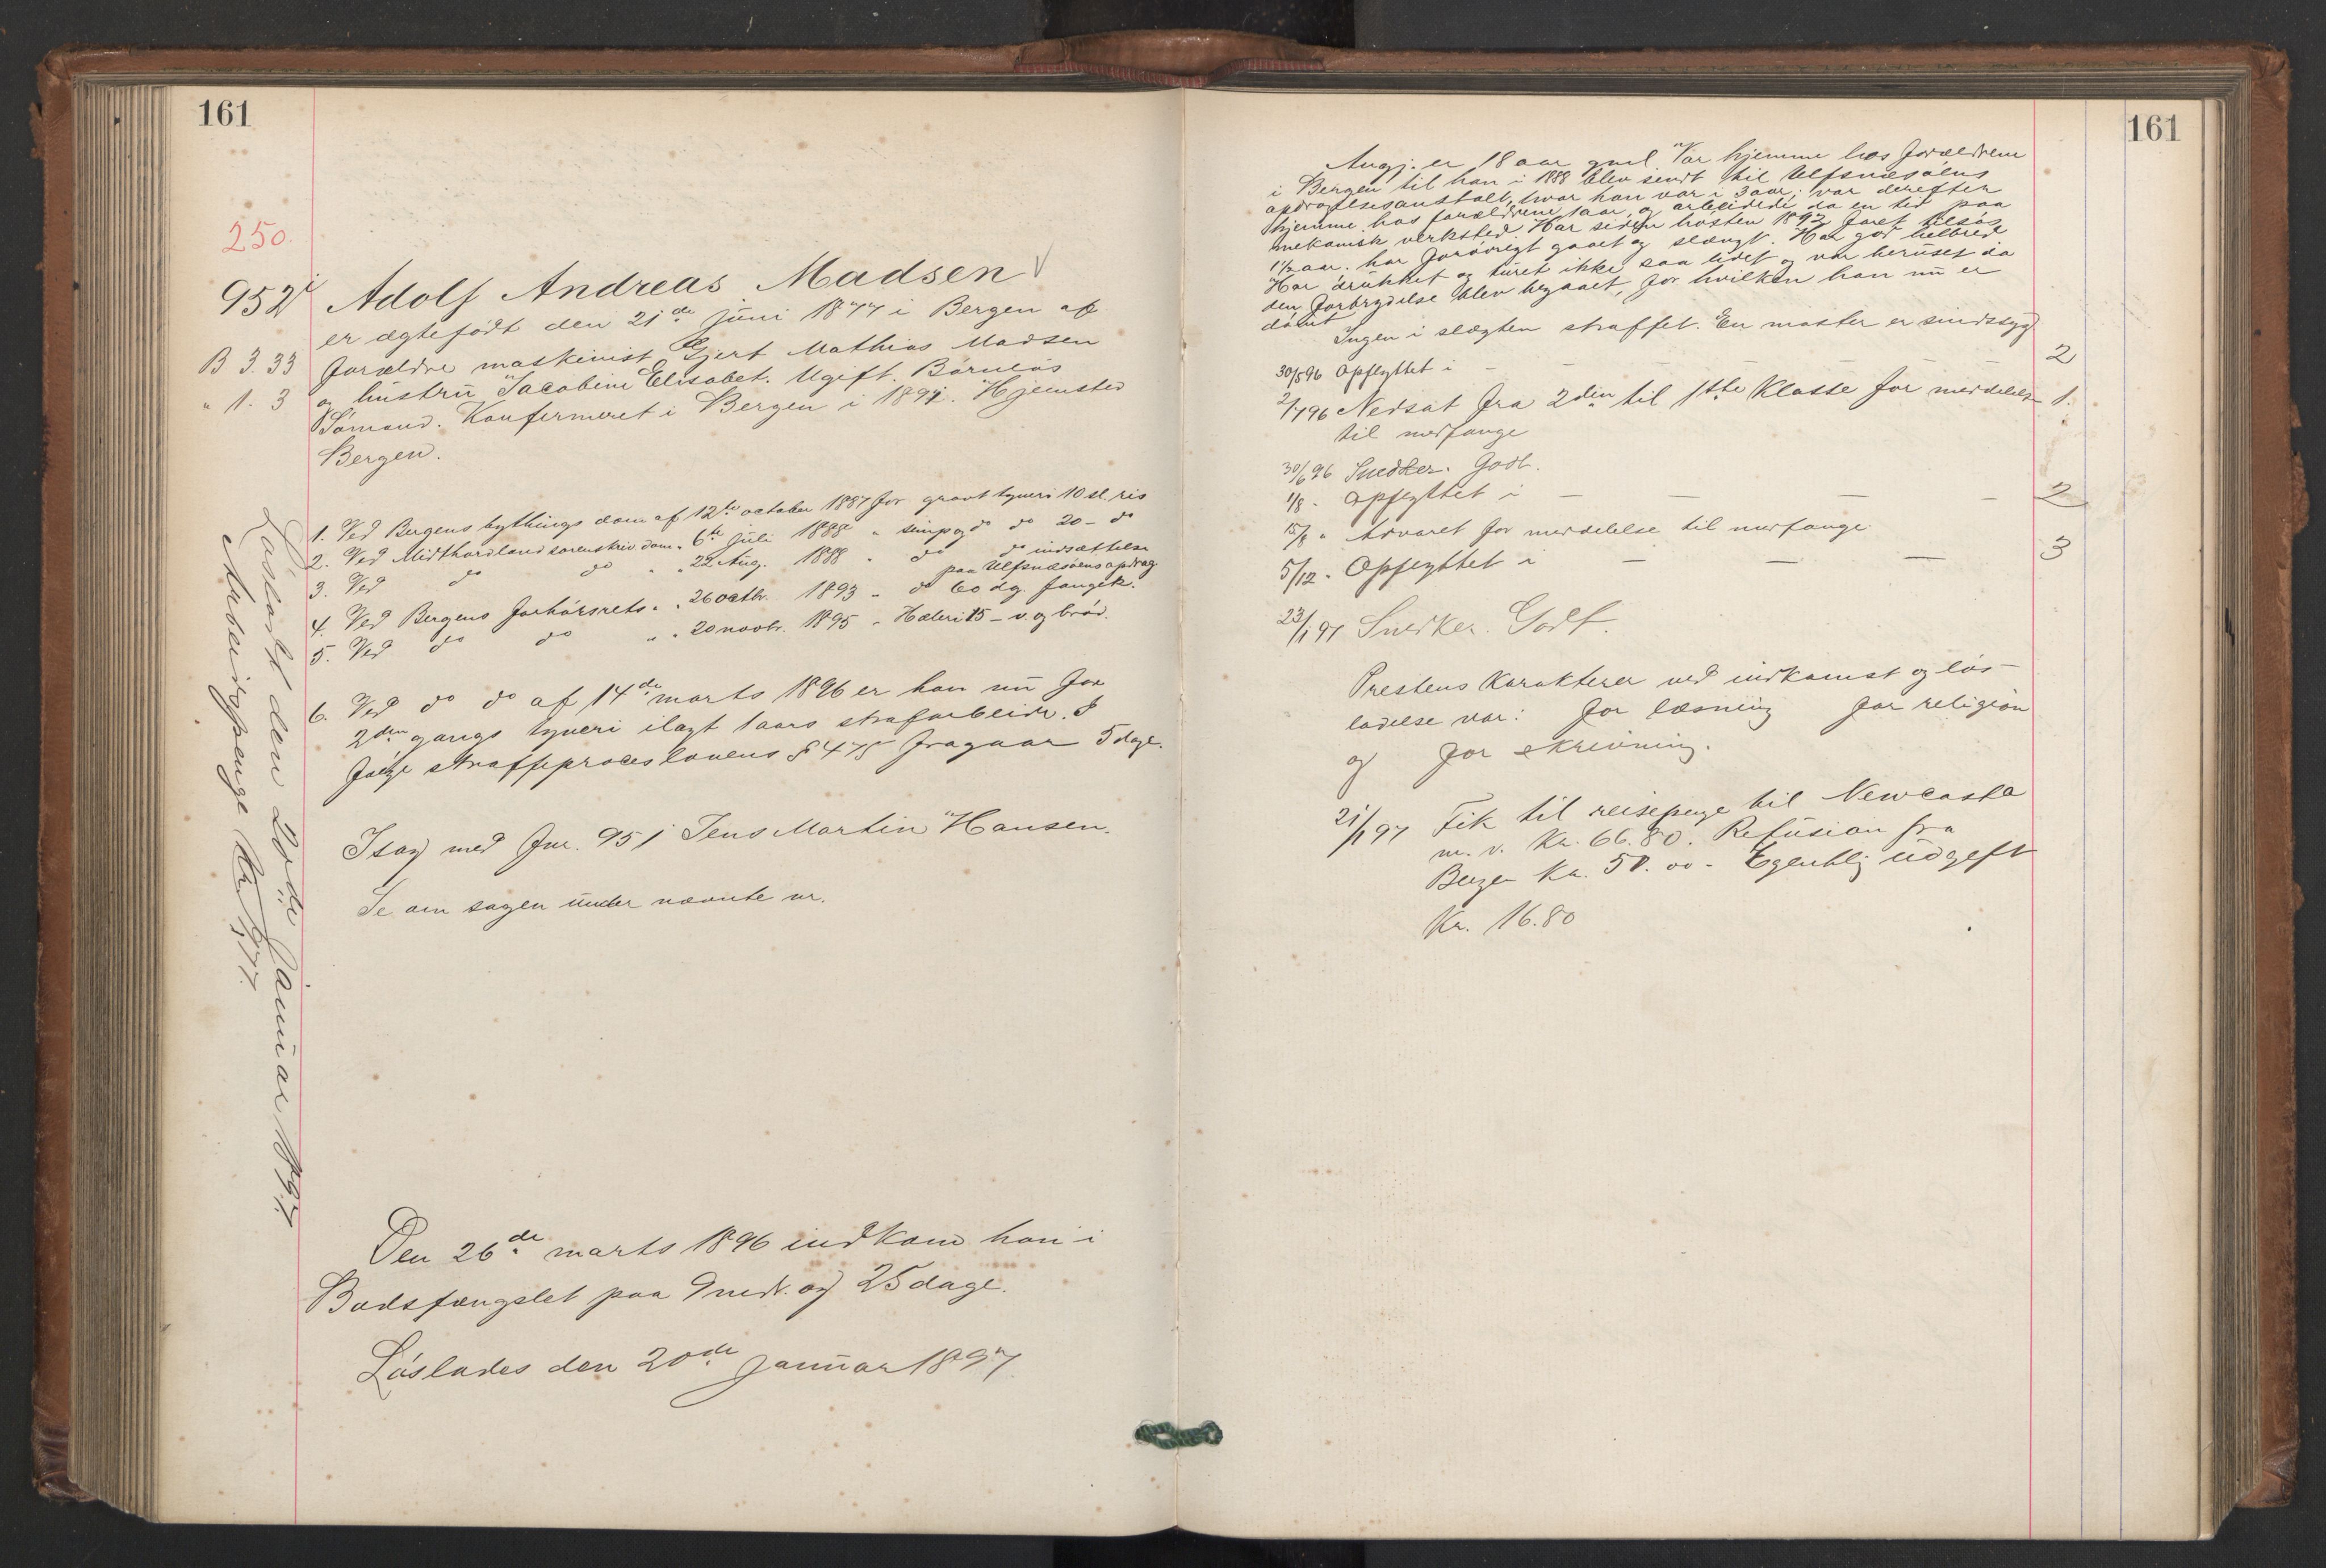 161
250
952 Adolf Andreas Madsen
er ægtefødt den 21de juni 1877 i Bergen af
B 3. 33 forældre maskinist Gjert Mathias Madsen
" 1. 3 og hustru Jacobine Elisabet. Ugift. Barnløs
Sømand. Konfirmeret i Bergen i 1891. Hjemsted
Bergen.
1. Ved Bergens bythings dom af 12te october 1887 for grovt tyveri 10 sl. ris
2. Ved Midthordland sorenskriv. dom " 6te juli 1888 " simpeg do do 20 - do
3. Ved do do " " 22 Aug. 1888 " do do indsættelse
paa Ulfsnæsøens opdrag.
4. Ved Bergens forhørsrets " " 26 octbr. 1893 - do 60 dg. fængsl.
5. Ved do do " " 20 novbr. 1895 - Hæleri 15 - v. og brød.
6. Ved do do af 14de marts 1896 er han nu for
2den gangs tyveri ilagt 1 aars strafarbeide. I
følge straffeproceslovens § 475 fragaar 5 dage.
I sag med Fnr. 951 Jens Martin Hansen.
Se om sagen under nævnte nr.
Den 26de marts 1896 indkom han i
Bodsfængslet paa 9 mdr. og 25 dage.
Løslades den 20de januar 1897
Løsladt den 20de Januar 1897
Arbeidspenge Kr.
161
Angj. er 18 aar gml. Var hjemme hos forældrene
i Bergen til han i 1888 blev sendt til Ulfsnæsøens
opdragelsesanstalt, hvor han var i 3 aar; var derefter
hjemme hos forældrene 1 aar, og arbeidede da en tid paa
mekanisk verksted. Har siden høsten 1892 faret tilsøs
1 1/2 aar. har forøvrigt gaaet og slængt. Har god helbred
Har drukket og turet ikke saa lidet og var beruset da
den forbrydelse blev begaaet, for hvilken han nu er
dømt
Ingen i slægten straffet. En moster er sindssyg
30/5 96 Opflyttet i - - - - 2
2/7 96 Nedsat fra 2den til 1ste Klasse for meddelelse 1.
til medfange
30/6 96 Snedker. Godt.
1/8 - Opflyttet i - - - - 2
15/8 " Advaret for meddelelse til medfange
5/12 - Opflyttet i - - - 3
23/1 97 Snedker. Godt.
Prestens Karakterer ved indkomst og løs-
ladelse var: for læsning for religion
og for skrivning.
21/1 97 Fik til reisepenge til Newcastle
m. v. Kr. 66.80. Refusion fra
Bergen Kr. 50.00 - Egentlig udgift
Kr. 16.80